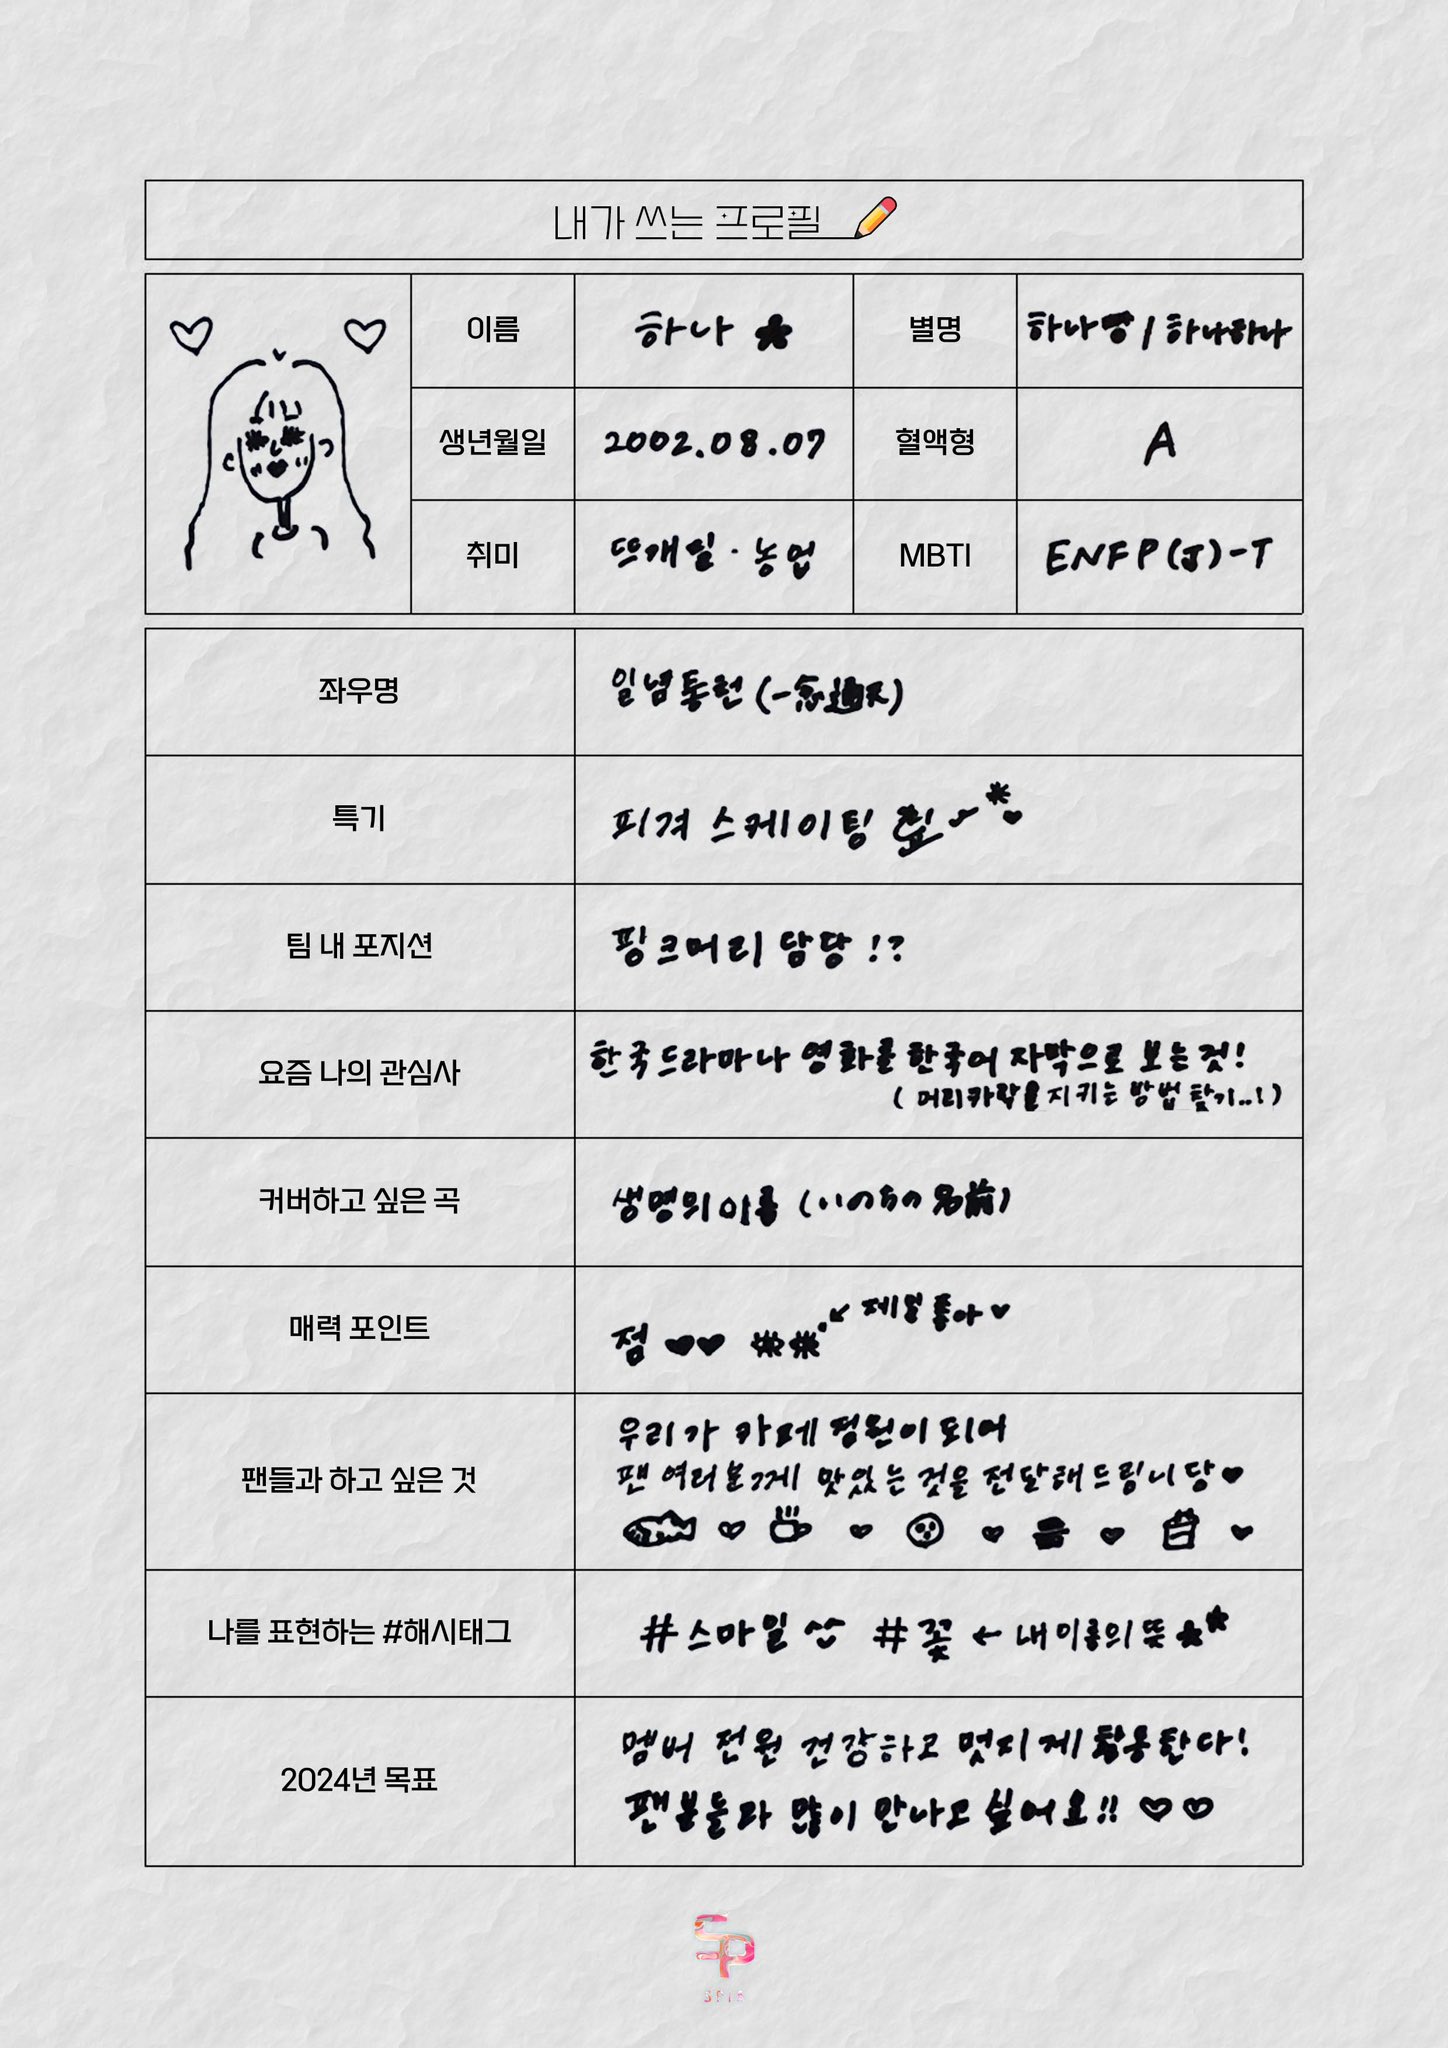 내가 쓰는 프로필
이름 하나 별명 하나땅 / 하나하나
생년월일 2002.08.07 혈액형 A
취미 뜨개질 · 농업 MBTI ENFP(J)-T
좌우명 일념통천 (一念通天)
특기 피겨 스케이팅
팀 내 포지션 핑크머리 담당 !?
요즘 나의 관심사 한국드라마나 영화를 한국어 자막으로 보는것!
(머리카락을 지키는 방법 찾기..!)
커버하고 싶은 곡 생명의이름 (いのちの名前)
매력 포인트 점 ← 제일 좋아
팬들과 하고 싶은 것 우리가 카페 점원이 되어
팬 여러분께 맛있는 것을 전달해드림니당
나를 표현하는 #해시태그 #스마일 #꽃 ← 내 이름의 뜻
2024년 목표 멤버 전원 건강하고 멋지게 활동한다!
팬분들과 많이 만나고 싶어요!!
SPIA